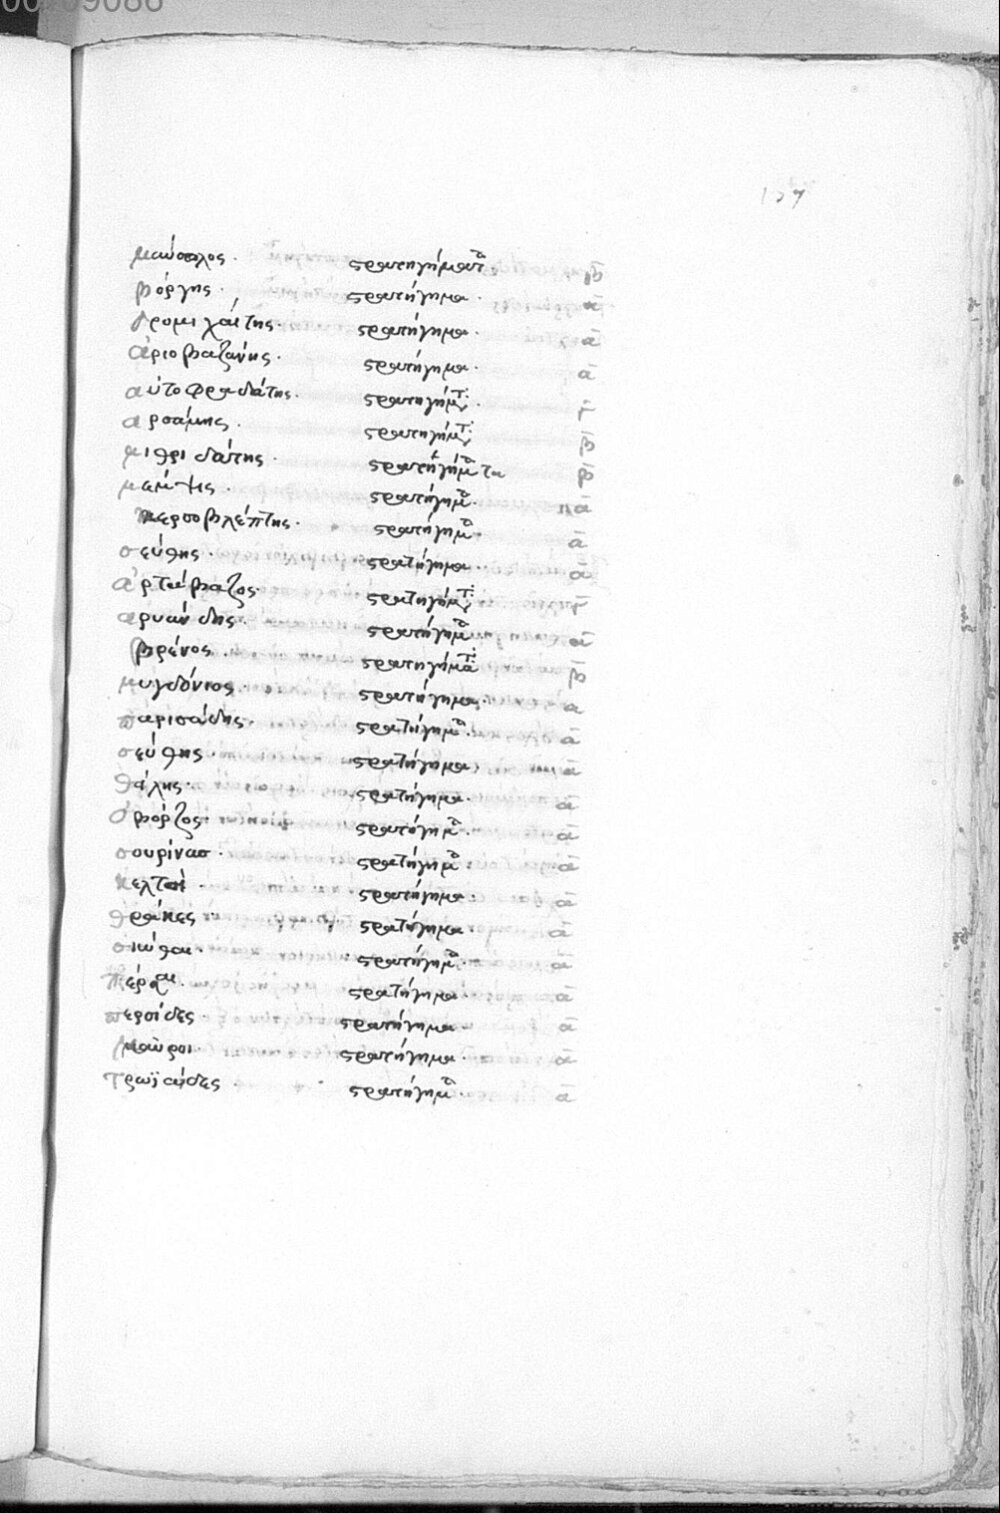 127
μαύσωλος. στρατηγήματα β
βόργης. στρατήγημα. α
δρομιχαίτης. στρατήγημα. α
ἀριοβαζάνης. στρατήγημα. α
αὐτοφραδάτης. στρατηγήματ. γ
αρσάμης. στρατηγήματ. β
μιθριδάτης. στρατηγήματα β
μεμψις. στρατήγημα. α
κερσοβλέπτης. στρατήγημα. α
σεύθης. στρατήγημα. α
ἀρτάβαζος. στρατηγήματ. γ
αρυάνδης. στρατήγημα α
βρένος. στρατηγήματα β
μυγδόνιος. στρατήγημα. α
παρισάδης. στρατήγημα. α
σεύθης. στρατήγημα. α
θάλης. στρατήγημα. α
ὀβόρζος. στρατήγημα. α
σουρίνασ. στρατήγημα α
κελτοὶ. στρατήγημα. α
θρᾶκες στρατήγημα. α
σκύθαι. στρατήγημα. α
πέρσαι. στρατήγημα α
περσίδες στρατήγημα. α
μαῦροι. στρατήγημα. α
τρωϊάδες. στρατήγημα. α